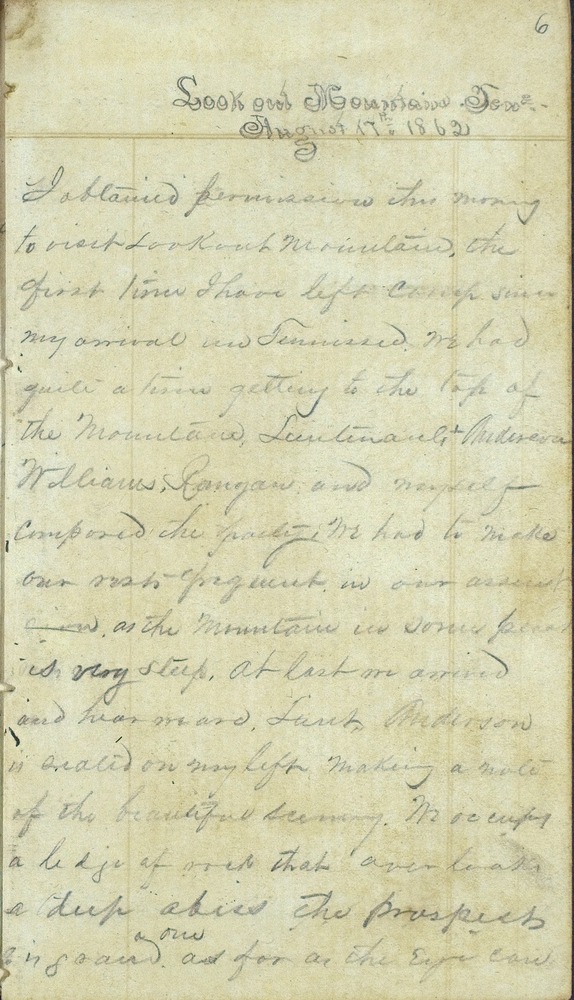 6
Look out Mountain Tenn.
August 17th 1862
I obtained permission this morning
to visit Lookout Mountain, the
first time I have left Camp since
my arrival in Tennessee. We had
quite a time getting to the top of
the Mountain, Lieutenants Anderson
Williams, and myself
composed the party, We had to make
our rests frequent in our assent
as the Mountain in some
is very steep. At last we arrived
and hear we are, Lieut. Anderson
is seated on my left making a note
of the beautiful scenery. We occupy
a ledge of rock that over looks
a deep abiss the prospect
is grand one as far as the Eye can